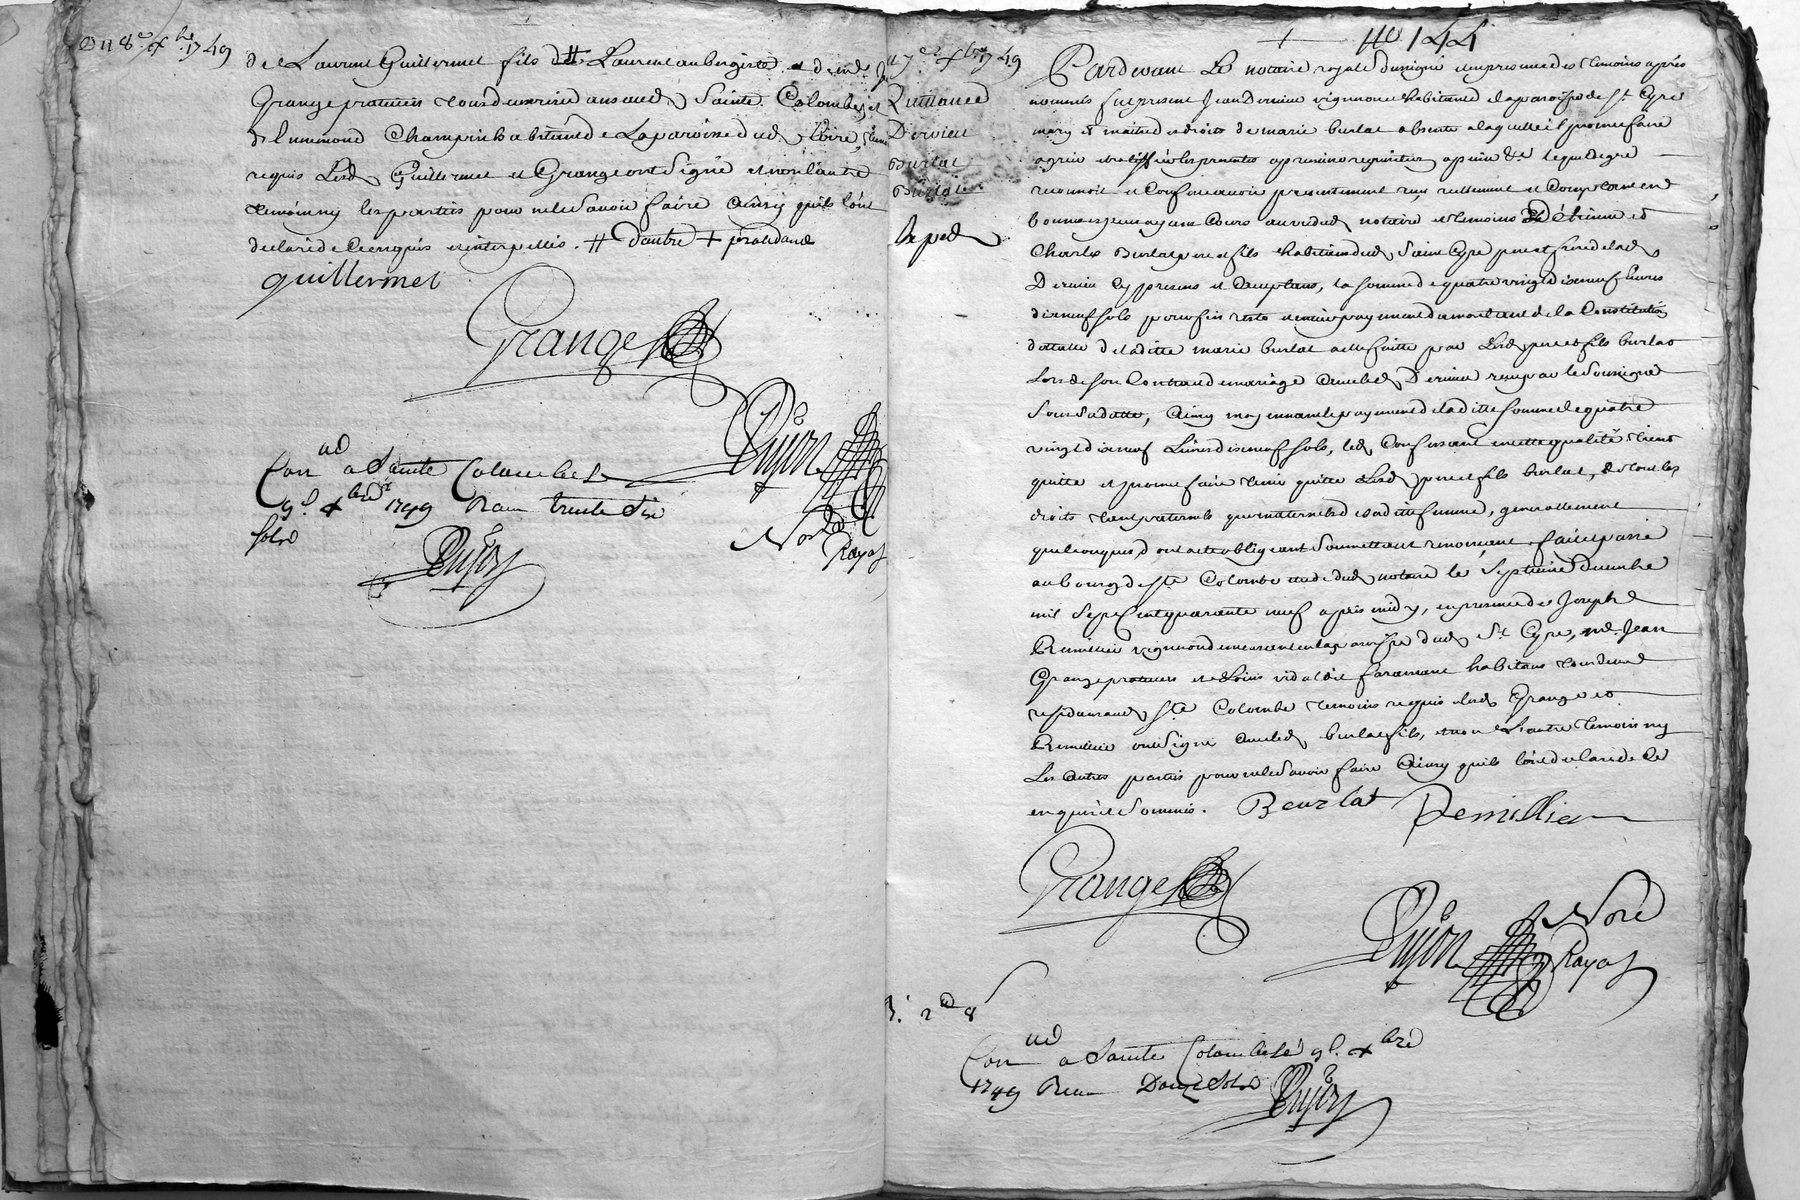 Du 8e xbre 1749
de Laurent Guillermet fils de Laurent aubergiste et de me Jn
Grange praticien tous deux residans aud Sainte Colombe, et
d'Ennemond Champin habitant de La paroisse dud Loire, temoins
requis Lesd Guillermet et Grange ont Signé et non l'autre
temoin ny les parties pour ne le Savoir faire Ainsy quils l'ont
declaré de Ce enquis et interpellés. # d'autre +
guillermet
Grange
Dujon
Nore
Royal
Con lle a Sainte Colombe le
9e xbre 1749 Recu trente Six
Sols
Dujon
7e xbre 1749
Quittance
Dervieu
Burlat
Burlat
Exped
No 144
Pardevant Le notaire royal Soussigné et en presence des temoins apres
nommés fut present Jean Dervieu vigneron habitant de la paroisse de St Cyre
mary et maitre des droits de marie burlat absente a laquelle il promet faire
agreer et ratiffier les presentes a premiere requisition a peine &c lequel de gré
reconnoit et Confesse avoir presentement reçu reellement et Comptant en
bonnes especes ayant Cours au vu dud notaire et temoins D'étienne et
Charles Burlat pere et fils habitans dud Saint Cyre pere et frere de lad
Dervieu Cy presens et acceptans, la somme de quatre vingt dixneuf Livres
dixneuf sols pour fin reste et entier payement du montant de la Constitution
dottalle de laditte marie burlat a elle faitte par Lesd pere et fils burlat
Lors de son Contrat de mariage avec led Dervieu reçu par le Soussigné
Sous Sa datte, Ainsy moyennant le payement de laditte somme de quatre
vingt dixneuf Livres dixneuf sols, led Confessant en cette qualité tient
quitte et promet faire tenir quitte Lesd pere et fils burlat, de tous les
droits tant paternels que maternels de saditte femme, generallement
quelconques, dont acte obligeant soumettant renonçant fait et passé
au bourg de Ste Colombe etude dud notaire le Septieme decembre
mil Sept cent quarante neuf apres midy, en presence de Joseph
Remillier vigneron demeurant en la paroisse dud St Cyre, me Jean
Grange praticien et de Louis vidal dit faramant habitans tous deux
residans aud Ste Colombe temoins requis lesd Grange et
Remillier ont Signé avec led burlat fils, et non L'autre temoin ny
Les autres parties pour ne le Savoir faire Ainsy quils l'ont declaré de Ce
enquis et Sommés. Beurlat Remillier
Grange
Dujon
Nore
Royal
Con lle a Sainte Colombe le 9e xbre
1749 Recu Douze Sols
Dujon